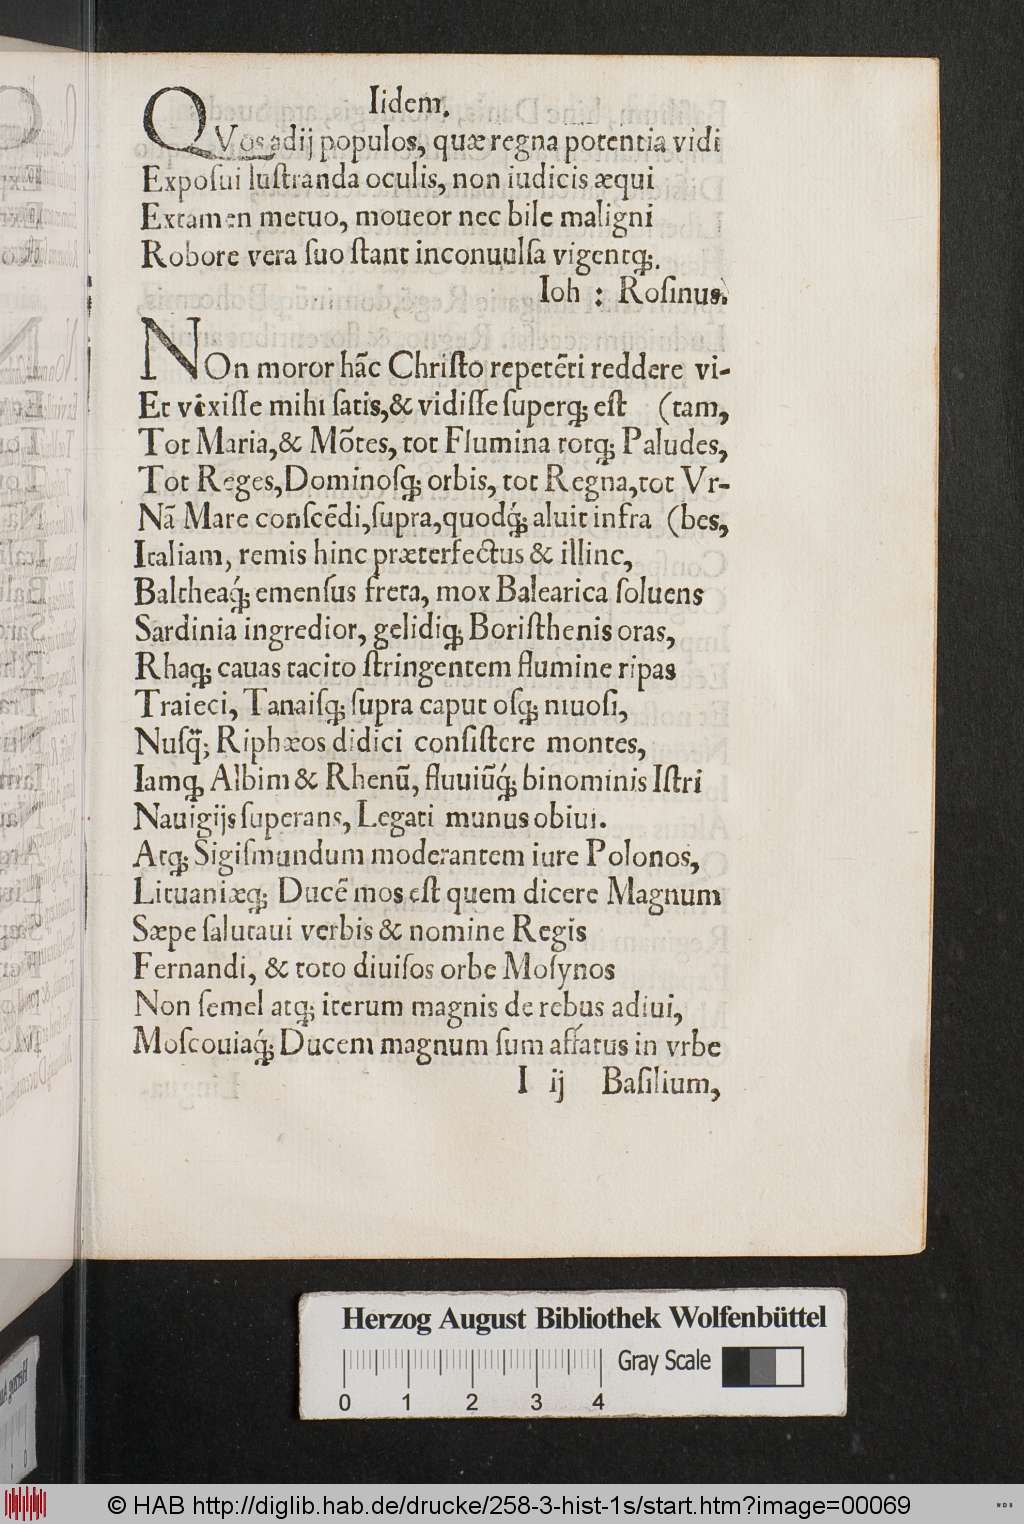 Iidem.
QVos adij populos, quæ regna potentia vidi
Exposui lustranda oculis, non iudicis æqui
Extamen metuo, moueor nec bile maligni
Robore vera suo stant inconuulsa vigentq;.
Ioh : Rosinus.
NOn moror hāc Christo repetēti reddere vi-
Et vixisse mihi satis,& vidisse superq; est (tam,
Tot Maria,& Mōtes, tot Flumina totq; Paludes,
Tot Reges,Dominosq; orbis, tot Regna,tot Vr-
Nā Mare conscēdi,supra,quodq́; aluit infra (bes,
Italiam, remis hinc præterfectus & illinc,
Baltheaq́; emensus freta, mox Balearica soluens
Sardinia ingredior, gelidiq; Boristhenis oras,
Rhaq; cauas tacito stringentem flumine ripas
Traieci, Tanaisq; supra caput osq; niuosi,
Nusq̄; Riphæos didici consistere montes,
Iamq, Albim & Rhenū, fluuiūq́; binominis Istri
Nauigijs superans, Legati munus obiui.
Atq; Sigismundum moderantem iure Polonos,
Lituaniæq; Ducē mos est quem dicere Magnum
Sæpe salutaui verbis & nomine Regis
Fernandi, & toto diuisos orbe Mosynos
Non semel atq; iterum magnis de rebus adiui,
Moscouiaq́; Ducem magnum sum affatus in vrbe
I ij Basilium,
Herzog August Bibliothek Wolfenbüttel
Gray Scale
0 1 2 3 4
© HAB http://diglib.hab.de/drucke/258-3-hist-1s/start.htm?image=00069